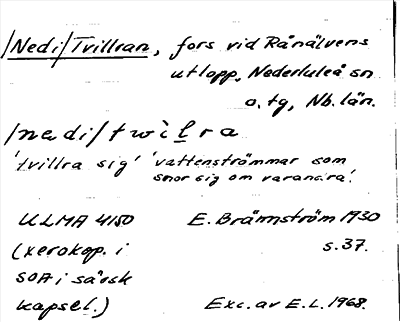 /Nedi/Tvillran, fors vid Rånälvens
utlopp, Nederluleå sn
o. tg, Nb. län.
/nedi/twilra
'tvillra sig' 'vattenströmmar som
snor sig om varandra'.
ULMA 4150 E. Brännström 1930
(xerokop. i s. 37.
SOA i särsk
kapsel.) Exc. av E. L. 1968.